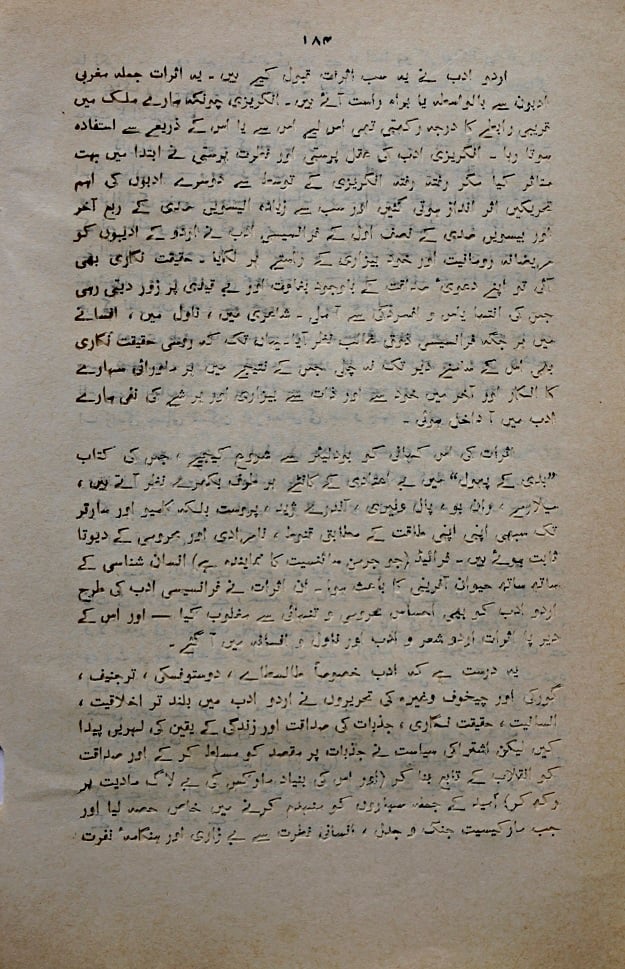 ۱۸۴
اردو ادب نے یہ سب اثرات قبول کیے ہیں ۔ یہ اثرات جملہ مغربی
ادبوں سے بالواسطہ یا براہ راست آئے ہیں ۔ انگریزی چونکہ ہمارے ملک میں
قریبی رابطے کا درجہ رکھتی تھی اس لیے اس سے یا اس کے ذریعے سے استفادہ
ہوتا رہا ۔ انگریزی ادب کی عقل پرستی اور فطرت پرستی نے ابتدا میں بہت
متاثر کیا مگر رفتہ رفتہ انگریزی کے توسط سے دوسرے ادبوں کی اہم
تحریکیں اثر انداز ہوتی گئیں اور سب سے زیادہ انیسویں صدی کے ربع آخر
اور بیسویں صدی کے نصف اول کے فرانسیسی ادب نے اردو کے ادیبوں کو
مریضانہ رومانیت اور خود بیزاری کے راستے پر لگایا ۔ حقیقت نگاری بھی
آئی تو اپنے دعویٰ صداقت کے باوجود بغاوت اور بے قیدی پر زور دیتی رہی
جس کی انتہا یاس و افسردگی سے آ ملی ۔ شاعری میں ، ناول میں ، افسانے
میں ہر جگہ فرانسیسی ذوق غالب نظر آیا ۔ یہاں تک کہ روسی حقیقت نگاری
بھی اس کے سامنے دیر تک نہ چلی جس کے نتیجے میں ہر ماورائی سہارے
کا انکار اور آخر میں خود سے اور ذات سے بیزاری اور ہر شے کی نفی ہمارے
ادب میں آ داخل ہوئی ۔
اثرات کی اس کہانی کو بودلیئر سے شروع کیجیے ، جس کی کتاب
”بدی کے پھول“ میں بے اعتمادی کے کانٹے ہر طرف بکھرے نظر آتے ہیں ،
میلارمے ، راں بو ، پال ویلیری ، آندرے ژید ، پروست بلکہ کامیو اور سارتر
تک سبھی اپنی اپنی طاقت کے مطابق قنوط ، نامرادی اور محرومی کے دیوتا
ثابت ہوئے ہیں ۔ فرائیڈ (جو جرمن سائنسیت کا نمایندہ ہے) انسان شناسی کے
ساتھ ساتھ حیوان آفرینی کا باعث ہوا ۔ ان اثرات نے فرانسیسی ادب کی طرح
اردو ادب کو بھی احساس محرومی و تنہائی سے مغلوب کیا — اور اس کے
دیر پا اثرات اردو شعر و ادب اور ناول و افسانہ میں آ گئے ۔
یہ درست ہے کہ ادب خصوصاً طالسطاے ، دوستوفسکی ، ترجنیف ،
گورکی اور چیخوف وغیرہ کی تحریروں نے اردو ادب میں بلند تر اخلاقیت ،
انسانیت ، حقیقت نگاری ، جذبات کی صداقت اور زندگی کے یقین کی لہریں پیدا
کیں لیکن اشتراکی سیاست نے جذبات پر مقصد کو مسلط کر کے اور صداقت
کو انقلاب کے تابع بنا کر (اور اس کی بنیاد مارکس کی بے لاگ مادیت پر
رکھ کر) امید کے جملہ سہاروں کو منہدم کرنے میں خاص حصہ لیا اور
جب مارکسیت جنگ و جدل ، انسانی فطرت سے بے زاری اور ہنگامۂ نفرت